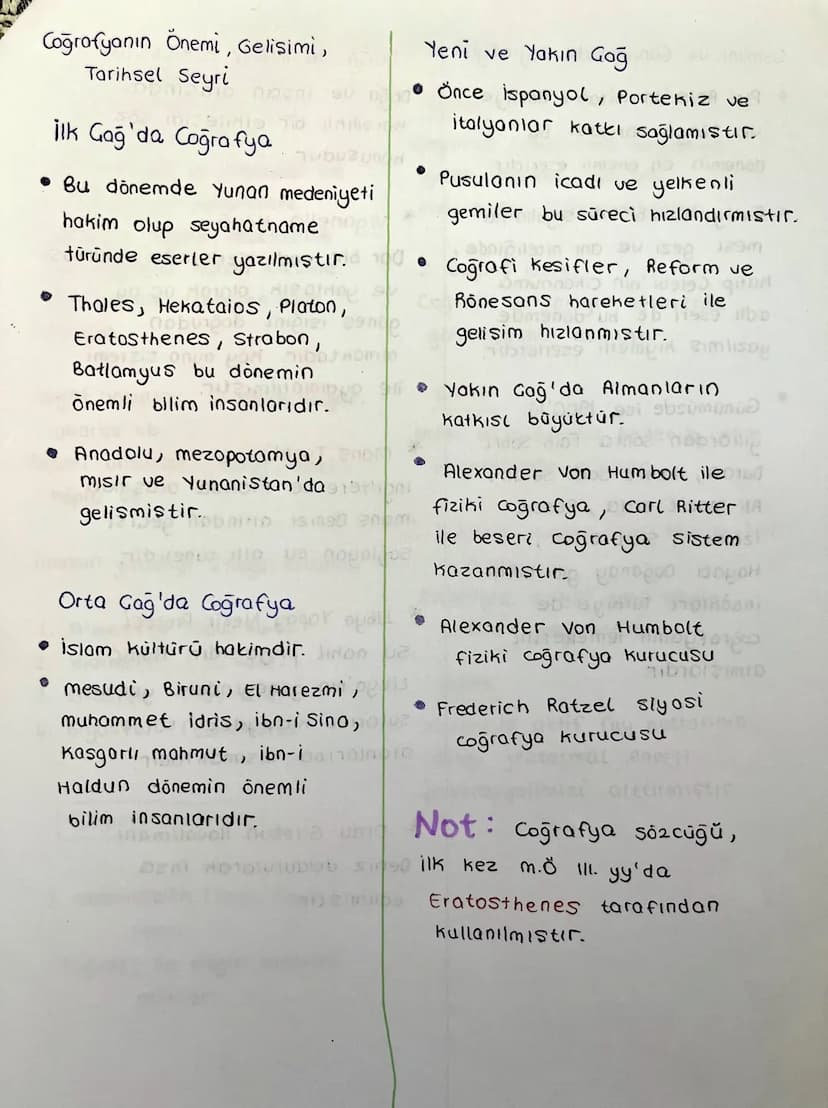 Coğrafyanın Önemi, Gelisimi,
Tarihsel Seyri
İlk Gağ'da Coğrafya
• Bu dönemde Yunan medeniyeti
hakim olup seyahatname
türünde eserler yazılmıstır.
• Thales, Hekataios, Platon,
Eratosthenes, Strabon,
Batlamyus bu dönemin
önemli bilim insanlarıdır.
• Anadolu, mezopotamya,
mısır ve Yunanistan'da
gelismistir.
Orta Gağ'da Coğrafya
• İslam kültürü hakimdir.
• mesudi, Biruni, El Harezmi,
muhammet idris, ibn-i Sina,
Kasgarlı mahmut, ibn-i
Haldun dönemin önemli
bilim insanlarıdır.
Yeni ve Yakın Gağ
• Önce İspanyol, Portekiz ve
italyanlar katkı sağlamıstır.
• Pusulanın icadı ve yelkenli
gemiler bu süreci hızlandırmıstır.
• Coğrafi Kesifler, Reform ve
Rönesans hareketleri ile
gelisim hızlanmıstır.
• Yakın Gağ'da Almanların
katkısı büyüktür.
• Alexander Von Humbolt ile
fiziki coğrafya, Carl Ritter
ile beseri coğrafya sistem
kazanmıstır.
• Alexander Von Humbolt
fiziki coğrafya kurucusu
• Frederich Ratzel siyasi
coğrafya kurucusu
Not: Coğrafya sözcüğü,
ilk kez m.Ö III. yy'da
Eratosthenes tarafından
kullanılmıstır.